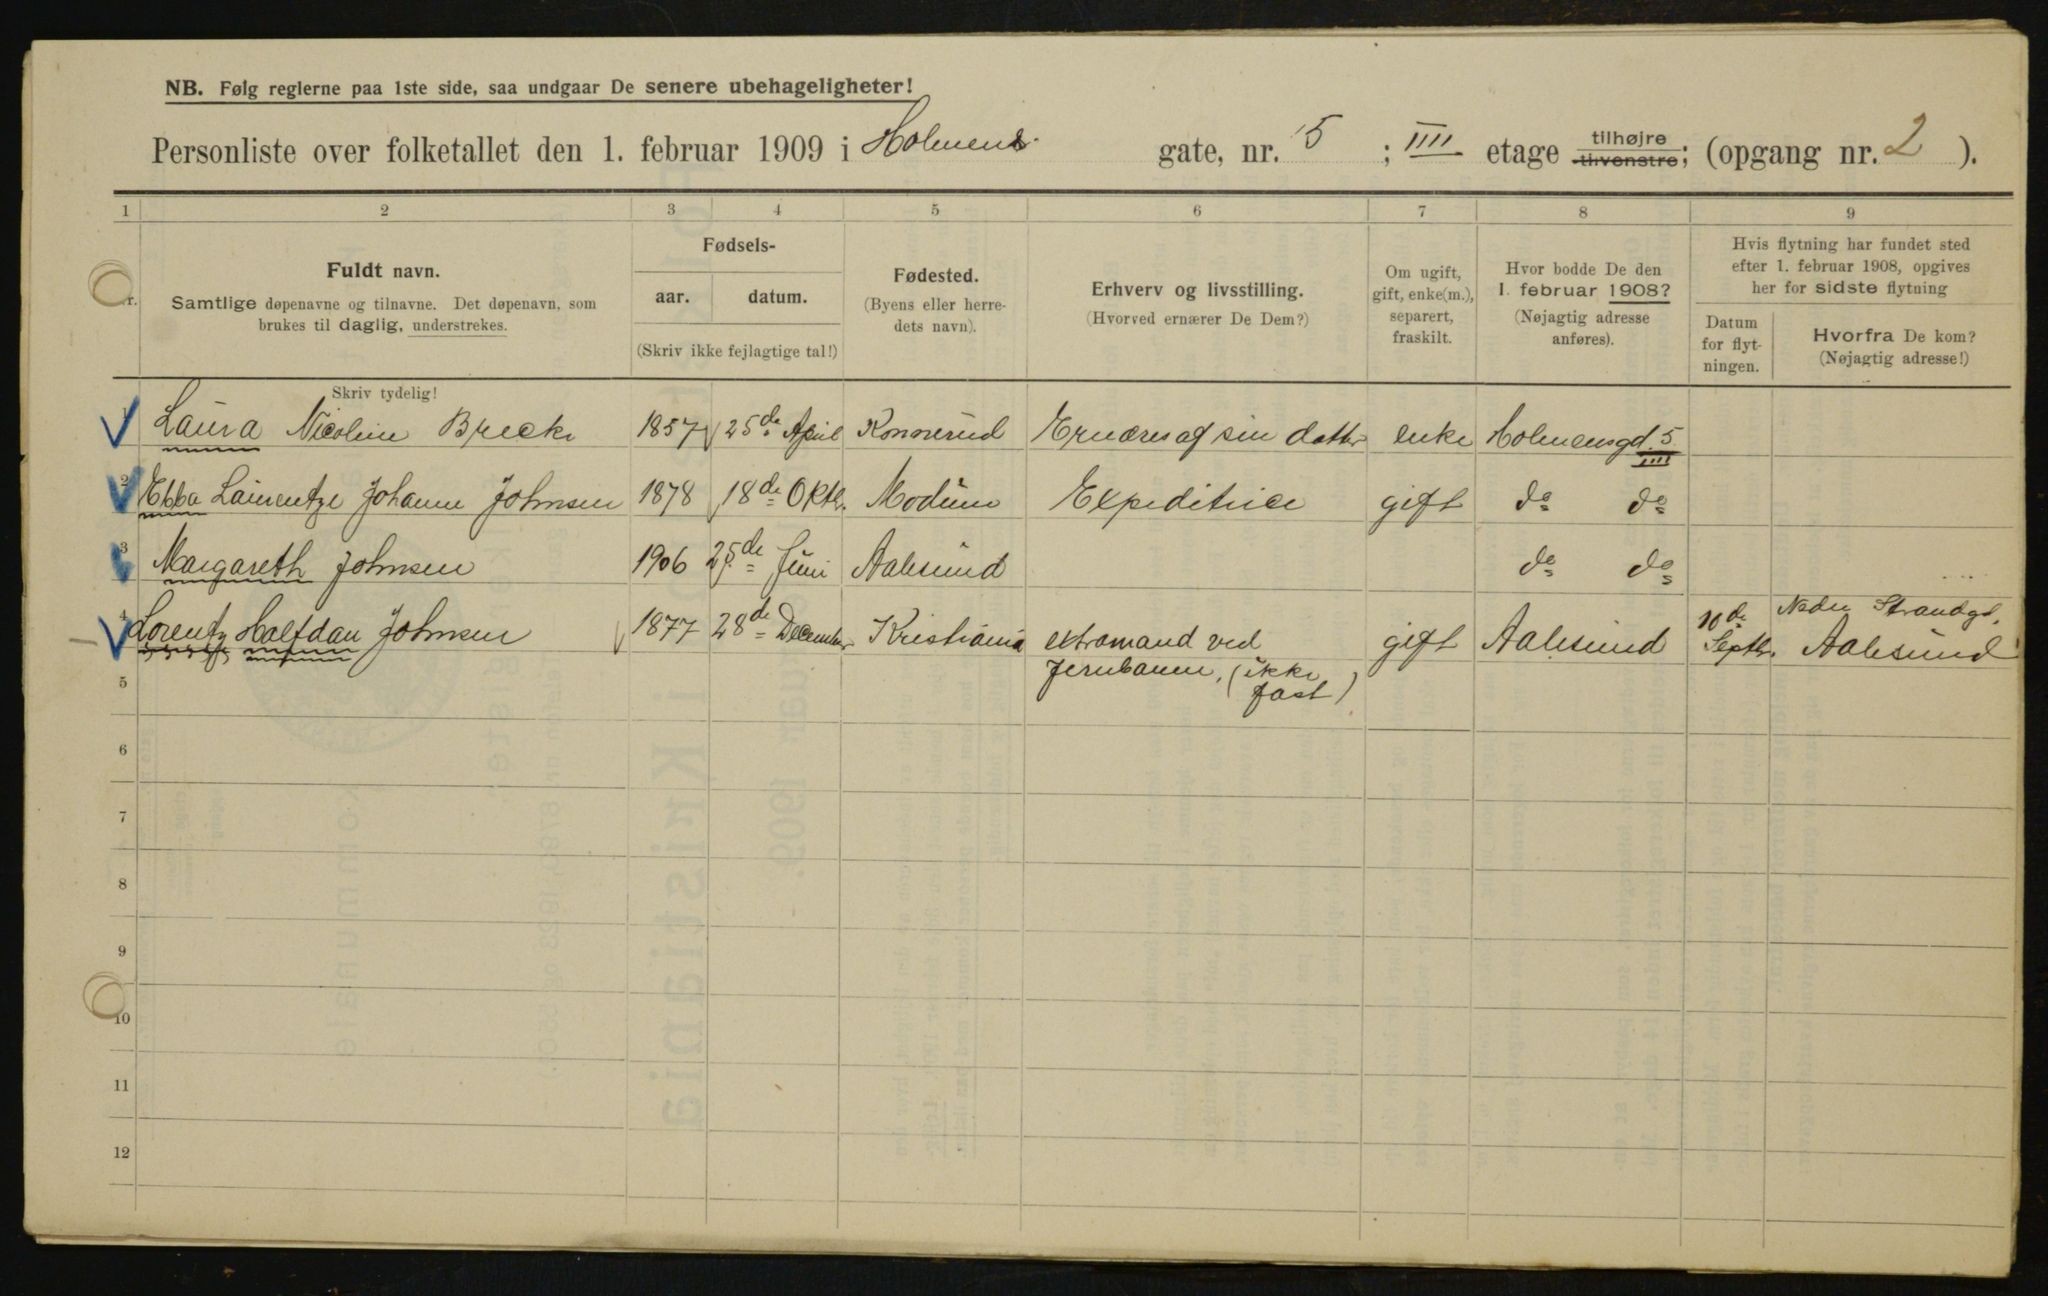 NB. Følg reglerne paa 1ste side, saa undgaar De senere ubehageligheter!
Personliste over folketallet den 1. februar 1909 i Holmens gate, nr. 5 ; IIII etage tilhøjre tilvenstre; (opgang nr. 2 ).
1 2 3 4 5 6 7 8 9
Fuldt navn.
Samtlige døpenavne og tilnavne. Det døpenavn, som
brukes til daglig, understrekes.
Fødsels-
aar. datum.
(Skriv ikke fejlagtige tal!)
Fødested.
(Byens eller herre-
dets navn).
Erhverv og livsstilling.
(Hvorved ernærer De Dem?)
Om ugift,
gift, enke(m.),
separert,
fraskilt.
Hvor bodde De den
1. februar 1908?
(Nøjagtig adresse
anføres).
Hvis flytning har fundet sted
efter 1. februar 1908, opgives
her for sidste flytning
Datum
for flyt-
ningen.
Hvorfra De kom?
(Nøjagtig adresse!)
Skriv tydelig!
1 Laura Nicoline Brecke 1857 25de April Konnerud Ernæres af sin datter enke Holmensgd 5 IIII
2 Ebba Laurentze Johanne Johnsen 1878 18de Oktbr. Modum Expeditrice gift do do
3 Margareth Johnsen 1906 25de Juni Aalesund do do
4 Lorentz Halfdan Johnsen 1877 28de December Kristiania extramand ved gift Aalesund 10de Septbr. Nedre Strandgd, Aalesund
Jernbanen, (ikke
fast)
5
6
7
8
9
10
11
12